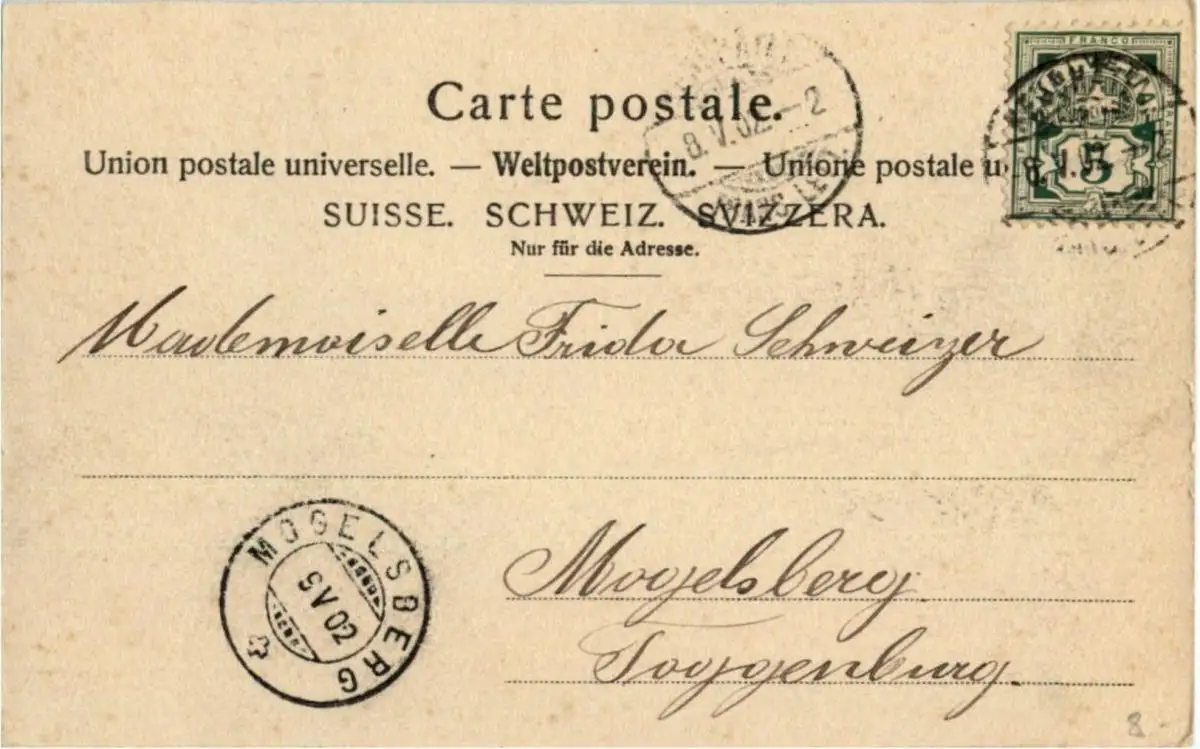 FRANCO
5
Carte postale.
8.V.02.-2
Union postale universelle. — Weltpostverein. — Unione postale u
SUISSE. SCHWEIZ. SVIZZERA.
Nur für die Adresse.
Mademoiselle Frida Schweizer
MOGELSBERG
9 V 02
Mogelsberg.
Toggenburg.
8